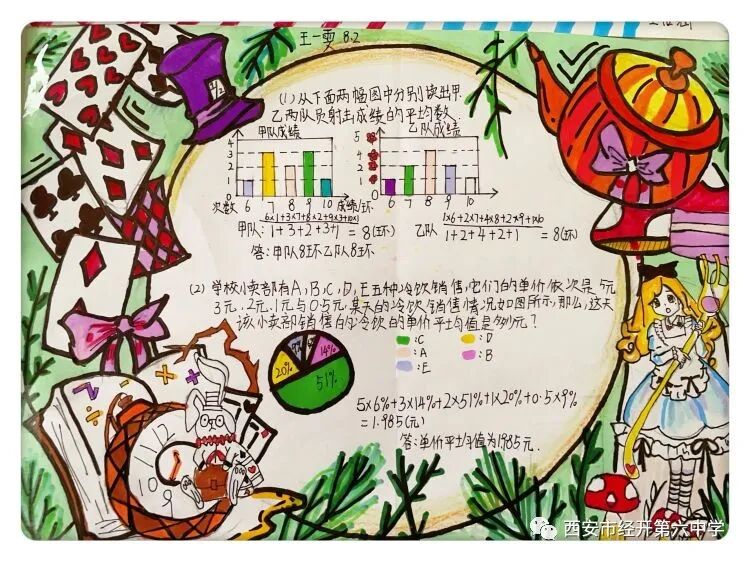 王一雯 8.2
(1) 从下面两幅图中分别读出甲.
乙两队员射击成绩的平均数.
甲队成绩
乙队成绩
4
3
2
1
次数 6 7 8 9 10 成绩/环
5
4
3
2
1
6 7 8 9 10
甲队: 6×1+3×7+8×2+9×3+10×1 / 1+3+2+3+1 = 8(环)
乙队 1×6+2×7+4×8+2×9+1×10 / 1+2+4+2+1 = 8(环)
答: 甲队8环乙队8环
(2) 学校小卖部有A,B,C,D,E五种冷饮销售,它们的单价依次是5元
3元.2元.1元与0.5元.某天的冷饮销售情况如图所示,那么,这天
该小卖部销售的冷饮的单价平均值是多少元?
:C :D
:A :B
:E
20%
14%
51%
5×6%+3×14%+2×51%+1×20%+0.5×9%
=1.985(元)
答:单价平均值为1.985元.
12
11
10
9
西安市经开第六中学